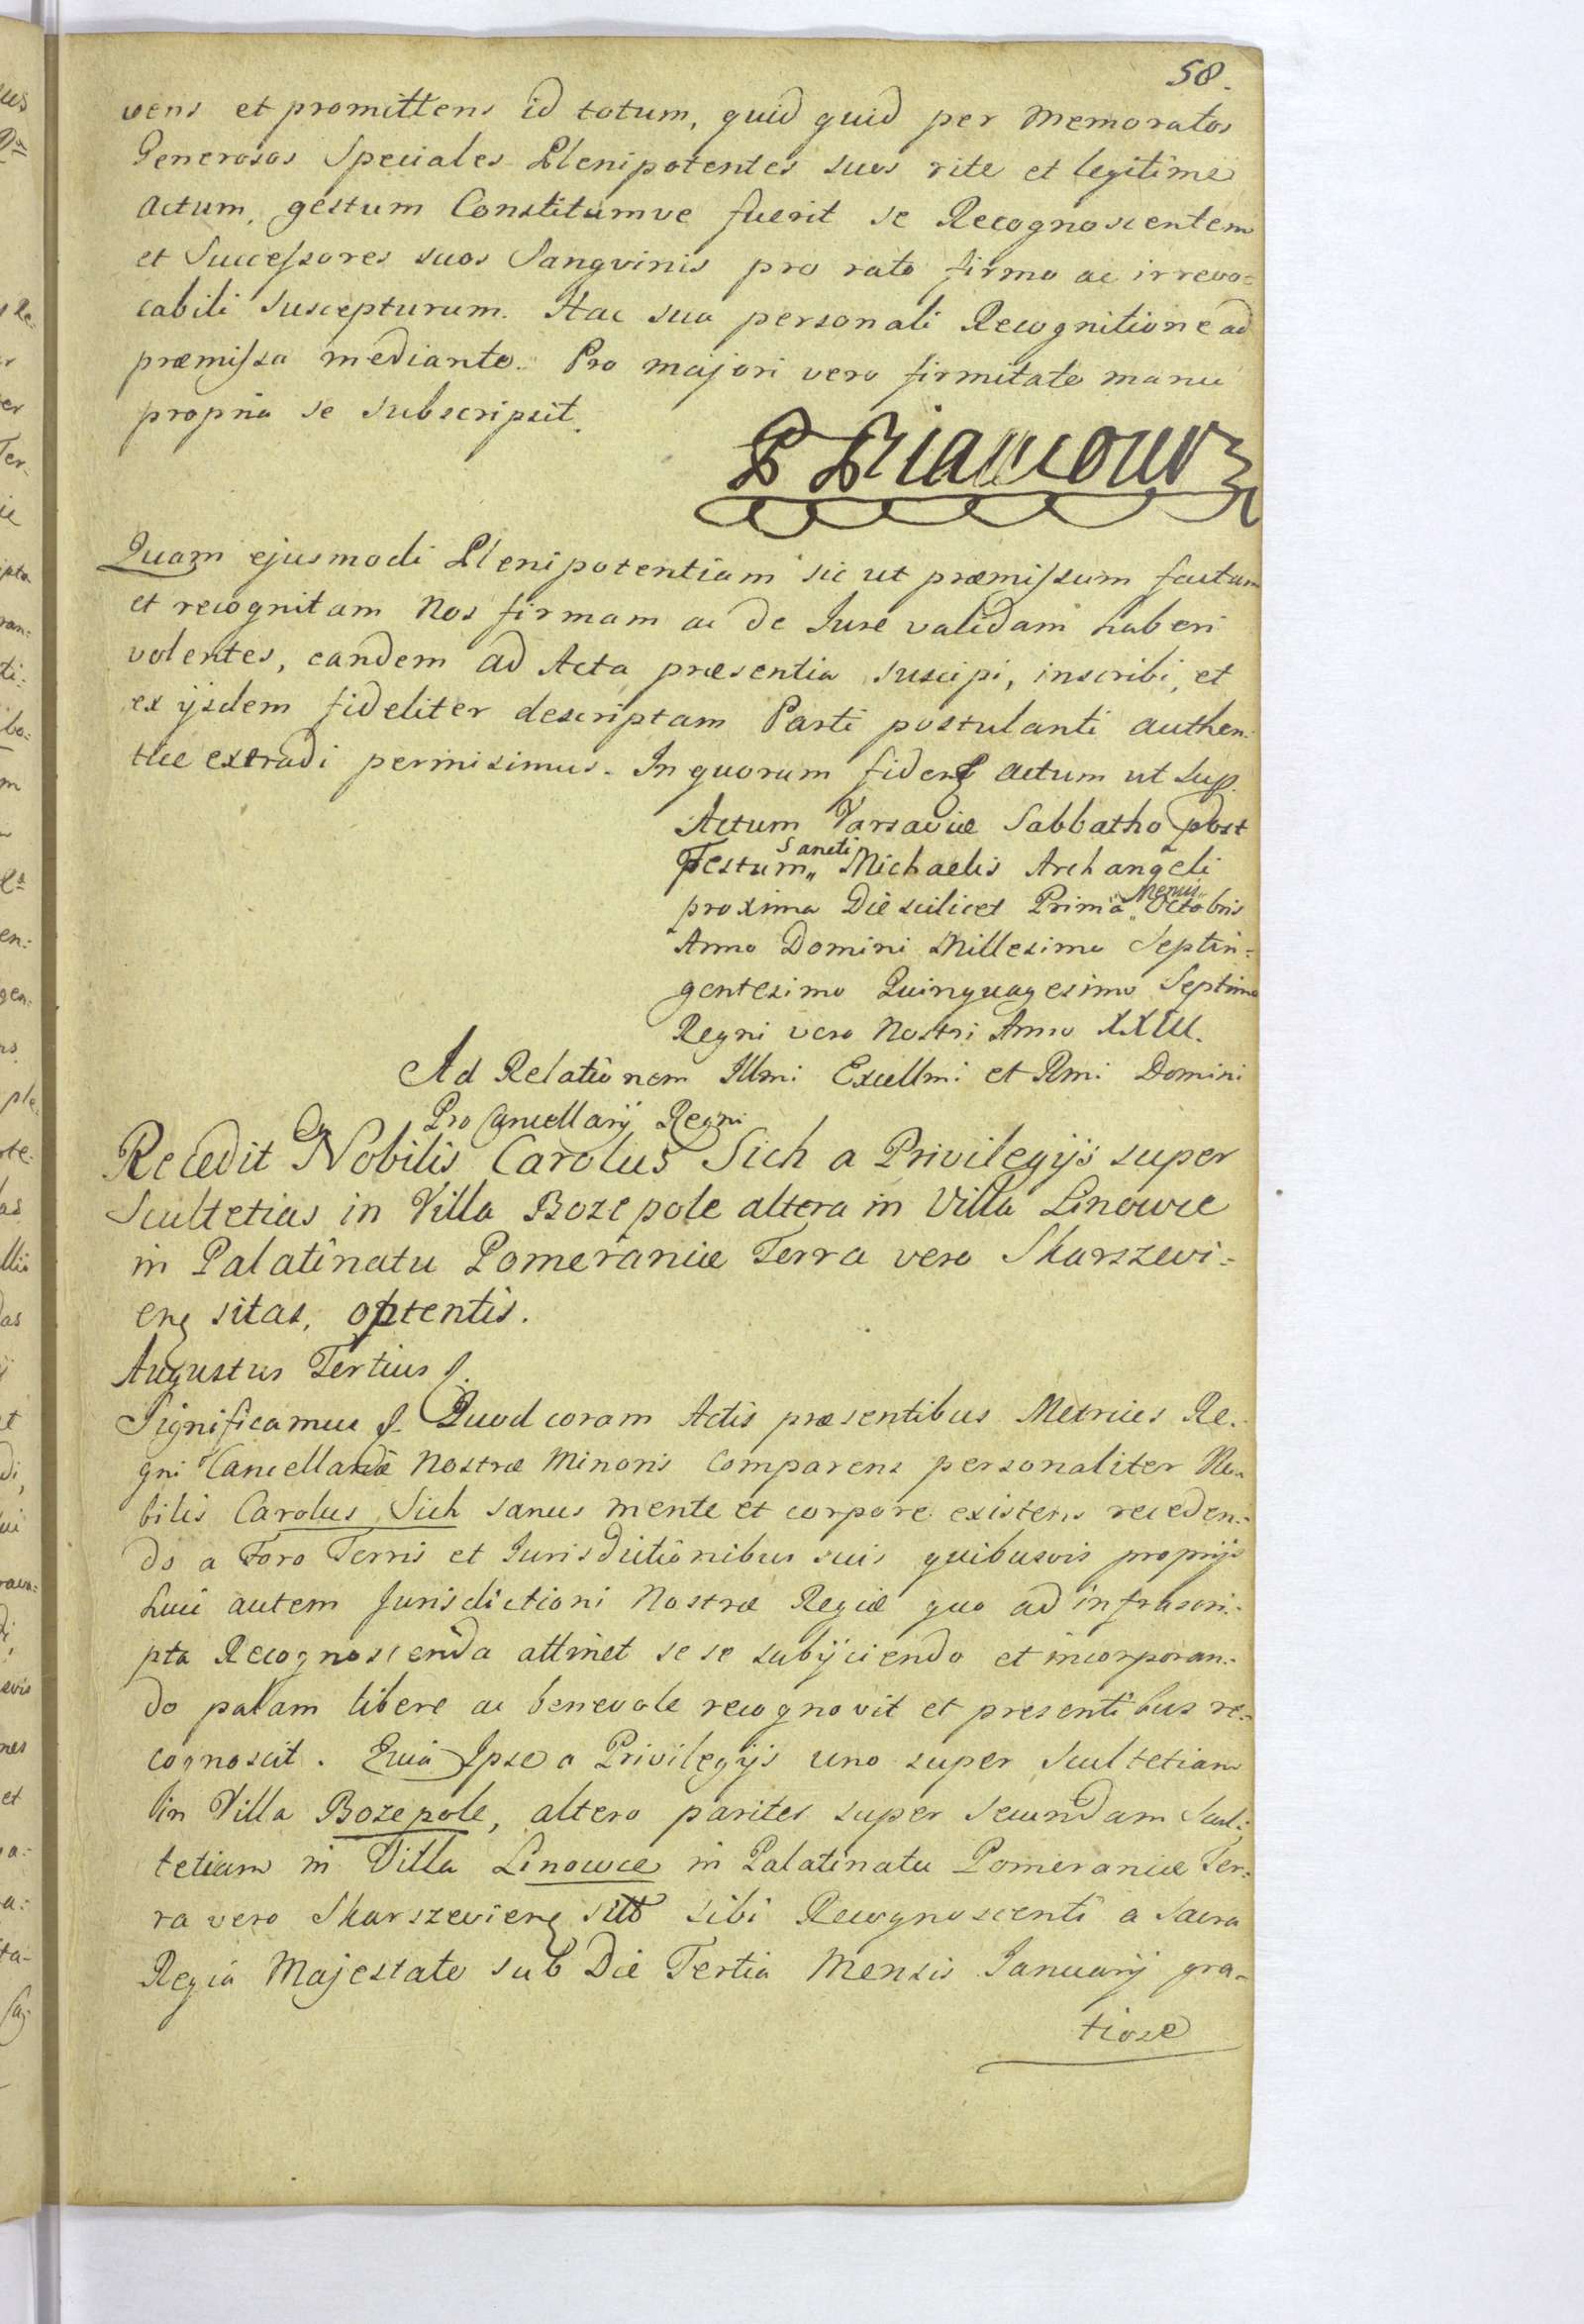 58.
vens et promittens id totum, quid quid per Memoratos
Generosos Speciales Plenipotentes suos rite et legitime
actum, gestum Constitumve fuerit se Recognoscentem
et Successores suos Sangvinis pro rato firmo ac irrevo=
cabili suscepturum. Hac sua personali Recognitione ad
præmissa mediante. Pro majori vero firmitate manu
propria se subscripsit.
Quam ejusmodi Plenipotentiam sic ut præmissum factam
et recognitam Nos firmam ac de Jure validam haberi
volentes, eandem ad Acta præsentia suscipi, inscribi, et
ex ijsdem fideliter descriptam Parti postulanti authen:
tice extradi permisimus. In quorum fidem actum ut sup.
Actum Varsaviæ Sabbatho post
Festum Sancti Michaelis Archangeli
proxima Die scilicet Prima Mensis Octobris
Anno Domini Millesimo Septin=
gentesimo Quinquagesimo Septimo
Regni vero Nostri Anno XXIII.
Ad Relationem Illmi Excellmi et Rmi Domini
Pro Cancellarij Regni
Recedit Nobilis Carolus Sich a Privilegijs super
Scultetias in Villa Bozepole altera in Villa Linowce
in Palatinatu Pomeraniæ Terra vero Skarszevi=
en sitas, optentis.
Augustus Tertius
Significamus Quod coram Actis præsentibus Metrices Re:
gni Cancellariæ Nostræ Minoris Comparens personaliter No=
bilis Carolus Sich sanus mente et corpore existens receden:
do a Foro Terris et Jurisdictionibus suis quibusvis proprijs
huic autem Jurisdictioni Nostræ Regiæ quo ad infrascri:
pta Recognoscenda attinet se se subijciendo et incorporan:
do palam libere ac benevole recognovit et presentibus re=
cognoscit. Quia Ipse a Privilegijs uno super Scultetiam
in Villa Bozepole, altero pariter super secundam Scul:
tetiam in Villa Linowce in Palatinatu Pomeraniæ Ter:
ra vero Skarszevien sitis sibi Recognoscenti a Sacra
Regia Majestate sub Die Tertia Mensis Januarij gra=
tiose